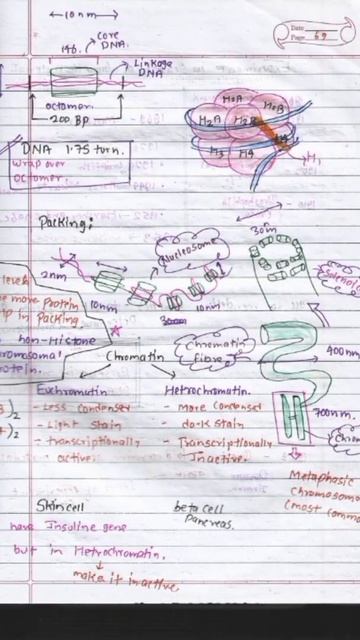 10nm
Date
Page 69
146.
Core
DNA.
Linkage
DNA
octomer.
200 BP
H2A
H2B
H2A
H2B
H3
H4
H1
DNA 1.75 turn.
wrap over
octomer.
Packing:
Nucleosome
30nm
2nm
10nm
10nm
Solenoid
level
more Protein
in Packing.
non-Histone
romosomal
rotein.
Chromatin
Chromatin
fibre
400nm
700nm.
Euchromatin
- Less Condensed
- Light stain
- transcriptionally
active.
Hetrochromatin.
- More Condensed
- dark stain
- Transcriptionally
Inactive.
Metaphasic
Chromosome
(most comm
Skin cell
beta cell
Pancreas.
have Insuline gene
but in Hetrochromatin.
make it inactive